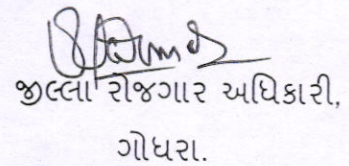 જીલ્લા રોજગાર અધિકારી,
ગોધરા.